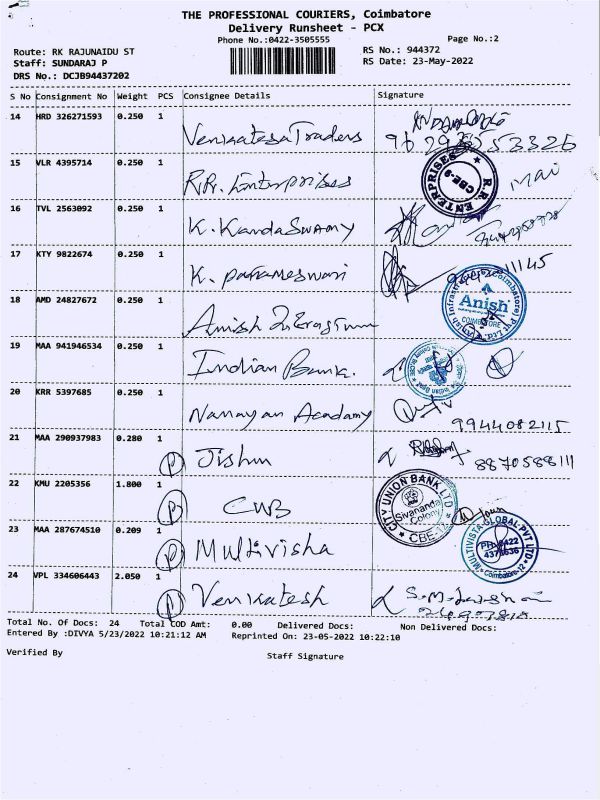 THE PROFESSIONAL COURIERS, Coimbatore
Delivery Runsheet - PCX
Phone No.:0422-3505555
Page No.:2
Route: RK RAJUNAIDU ST
RS No.: 944372
Staff: SUNDARAJ P
RS Date: 23-May-2022
DRS No.: DCJB94437202
S No Consignment No Weight PCS Consignee Details Signature
14 HRD 326271593 0.250 1 Venkatesa Traders
15 VLR 4395714 0.250 1 R.R. Enterprises
R.R. ENTERPRISES CBE-9
16 TVL 2563092 0.250 1 K. KandaSwamy
17 KTY 9822674 0.250 1 K. Parameswari
18 AMD 24827672 0.250 1 Anish
Anish COIMBATORE
19 MAA 941946534 0.250 1 Indian Bank.
20 KRR 5397685 0.250 1 Narayan Academy
9944082115
21 MAA 290937983 0.280 1 P Jishnu
8870588111
22 KMU 2205356 1.800 1 P CUB
CITY UNION BANK LTD. Sivananda Colony CBE-12
23 MAA 287674510 0.209 1 P Multivisha
MULTIVISTA GLOBAL PVT LTD PH: 0422 4378636 Coimbatore-12
24 VPL 334606443 2.050 1 P Venkatesh
Total No. Of Docs: 24 Total COD Amt: 0.00 Delivered Docs: Non Delivered Docs:
Entered By :DIVYA 5/23/2022 10:21:12 AM Reprinted On: 23-05-2022 10:22:10
Verified By
Staff Signature